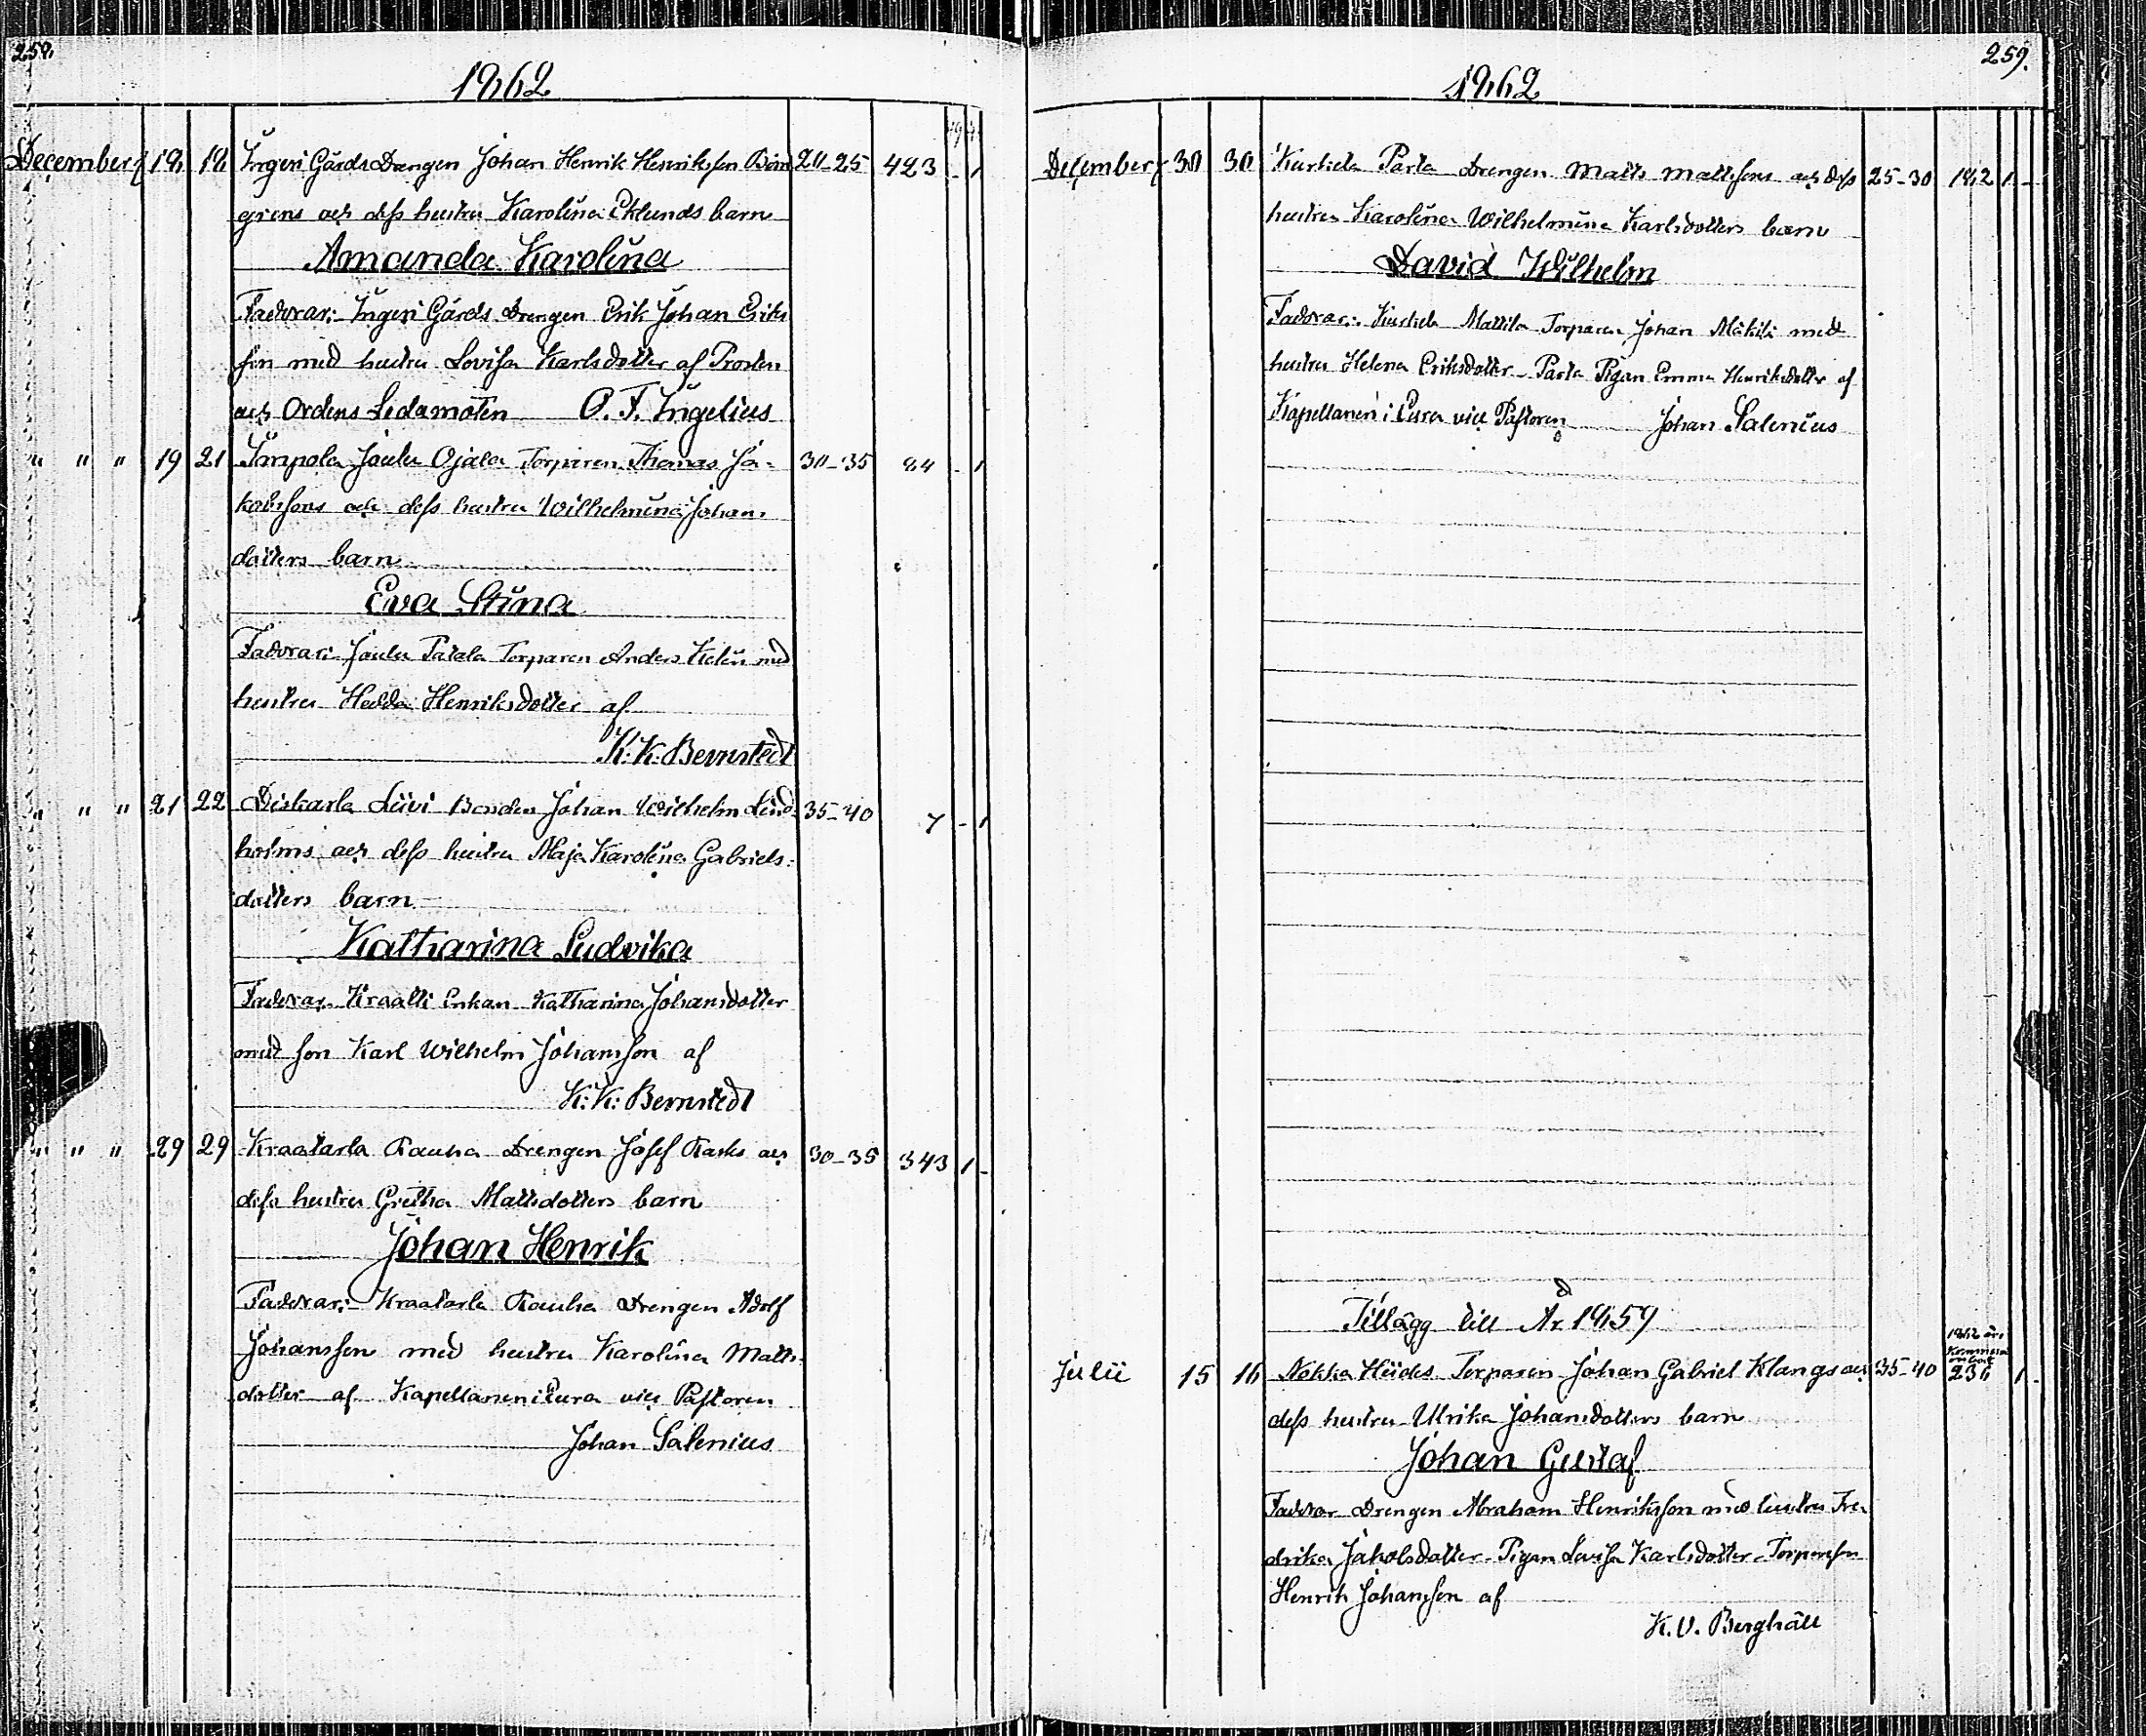 258.
1862
December 18 18 Ingeri Gårds Drengen Johan Henrik Henriksson Björn 20-25 423 - 1
grens och dess hustru Karolina Eklunds barn
Amanda Karolina
Faddrar: Ingeri Gårds Drengen Erik Johan Eriks
son med hustru Lovisa Karlsdotter af Prosten
och Ordens Ledamoten O. F. Ingelius
" " " 19 21 Impola Jaulu Ojala Torparen Thomas Ja- 30-35 84 - 1
kobssons och dess hustru Wilhelmina Johans
dotters barn
Eva Stina
Faddrar: Jaulu Torparen Anders med
hustru Hedda Henriksdotter af
K: K: Bernstedt
" " " 21 22 Diskarla Liivi Bonden Johan Wilhelm Lind 35-40 7 - 1
holms och dess hustru Maja Karolina Gabriels:
dotters barn
Katharina Ludvika
Faddrar. Kraatti Enkan Katharina Johansdotter
med son Karl Wilhelm Johansson af
K: K: Bernstedt
" " " 29 29 Kraatarla Rauha Drengen Josef Rasks och 30-35 343 1 -
dess hustru Gretha Mattsdotters barn
Johan Henrik
Faddrar: Kraatarla Rauha Drengen Adolf
Johansson med hustru Karolina Matts-
dotter af Kapellanen i Eura vice Pastoren
Johan Salenius
259.
1862
December 30 30 Kurkela Parta Drengen Matts Mattssons och dess 25-30 182 1 -
hustru Karolina Wilhelmina Karlsdotters barn
David Wilhelm
Faddrar: Kurkela Mattila Torparen Johan Mäkilä med
hustru Helena Eriksdotter - Parta Pigan Emma Henriksdotter af
Kapellanen i Eura vice Pastoren Johan Salenius
Tillägg till År 1859
1862 års
Julii 15 16 Nokka Torparen Johan Gabriel Klangs och 35-40 236 1 -
dess hustru Ulrika Johansdotters barn
Johan Gustaf
Faddrar Drengen Abraham Henriksson med hustru Fre
drika Jakobsdotter - Pigan Lovisa Karlsdotter - Torpareson
Henrik Johansson af
K. V. Berghäll